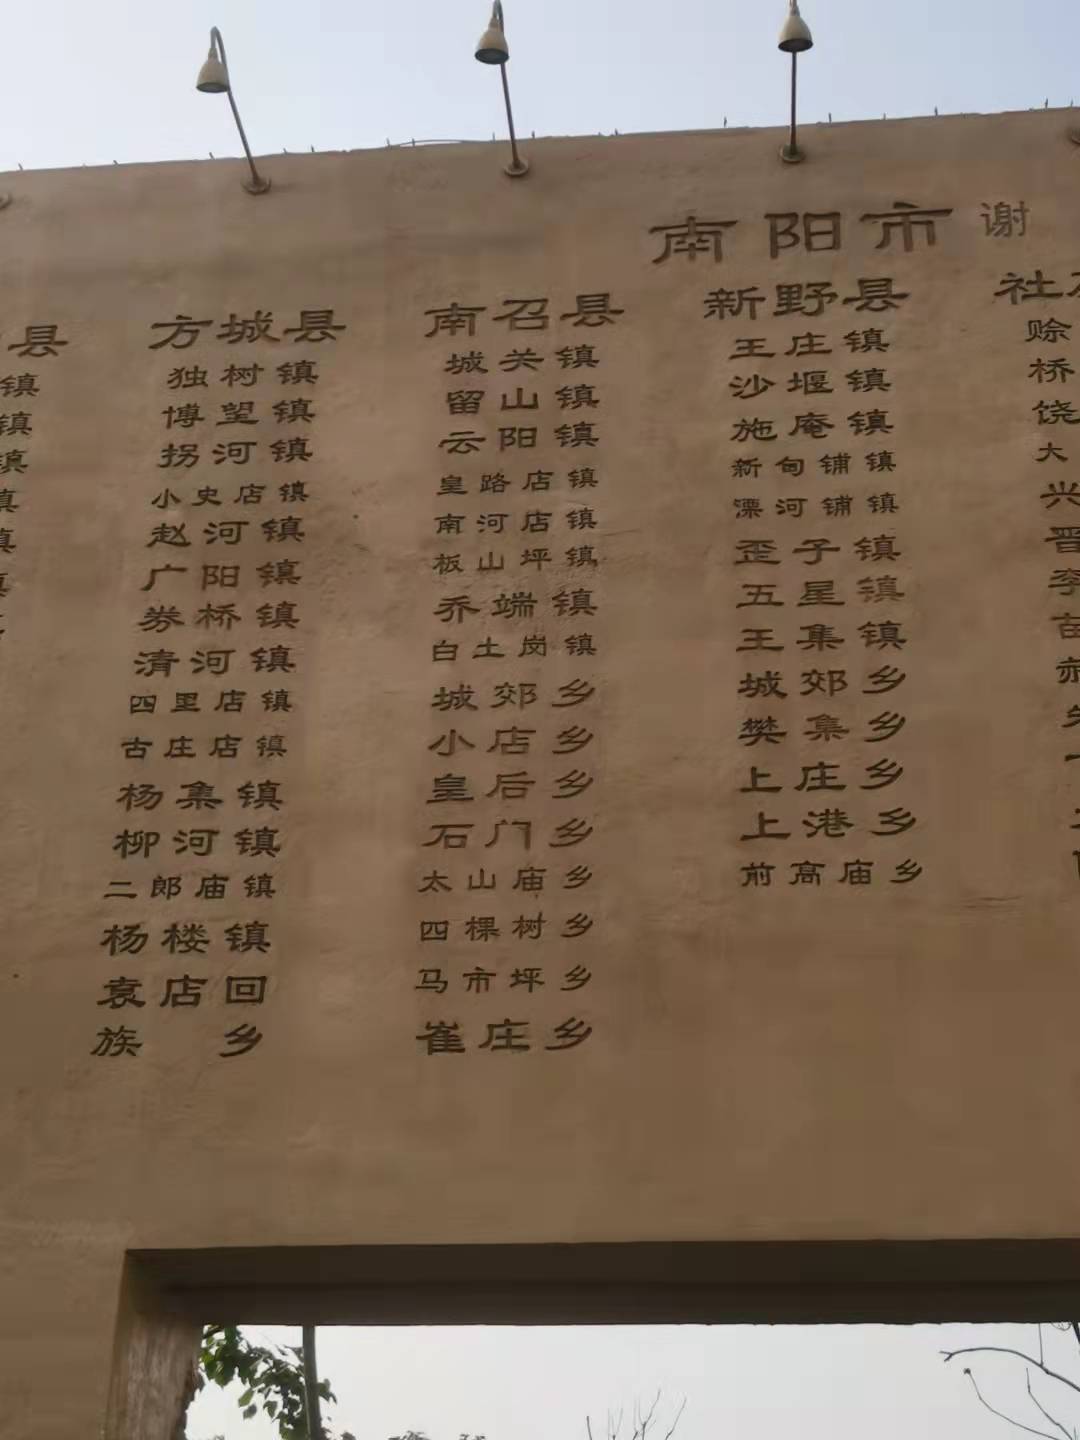 南阳市 谢
县
镇
镇
镇
镇
镇
方城县
独树镇
博望镇
拐河镇
小史店镇
赵河镇
广阳镇
券桥镇
清河镇
四里店镇
古庄店镇
杨集镇
柳河镇
二郎庙镇
杨楼镇
袁店回
族乡
南召县
城关镇
留山镇
云阳镇
皇路店镇
南河店镇
板山坪镇
乔端镇
白土岗镇
城郊乡
小店乡
皇后乡
石门乡
太山庙乡
四棵树乡
马市坪乡
崔庄乡
新野县
王庄镇
沙堰镇
施庵镇
新甸铺镇
溧河铺镇
歪子镇
五星镇
王集镇
城郊乡
樊集乡
上庄乡
上港乡
前高庙乡
社
赊
桥
饶
大
兴
晋
李
苗